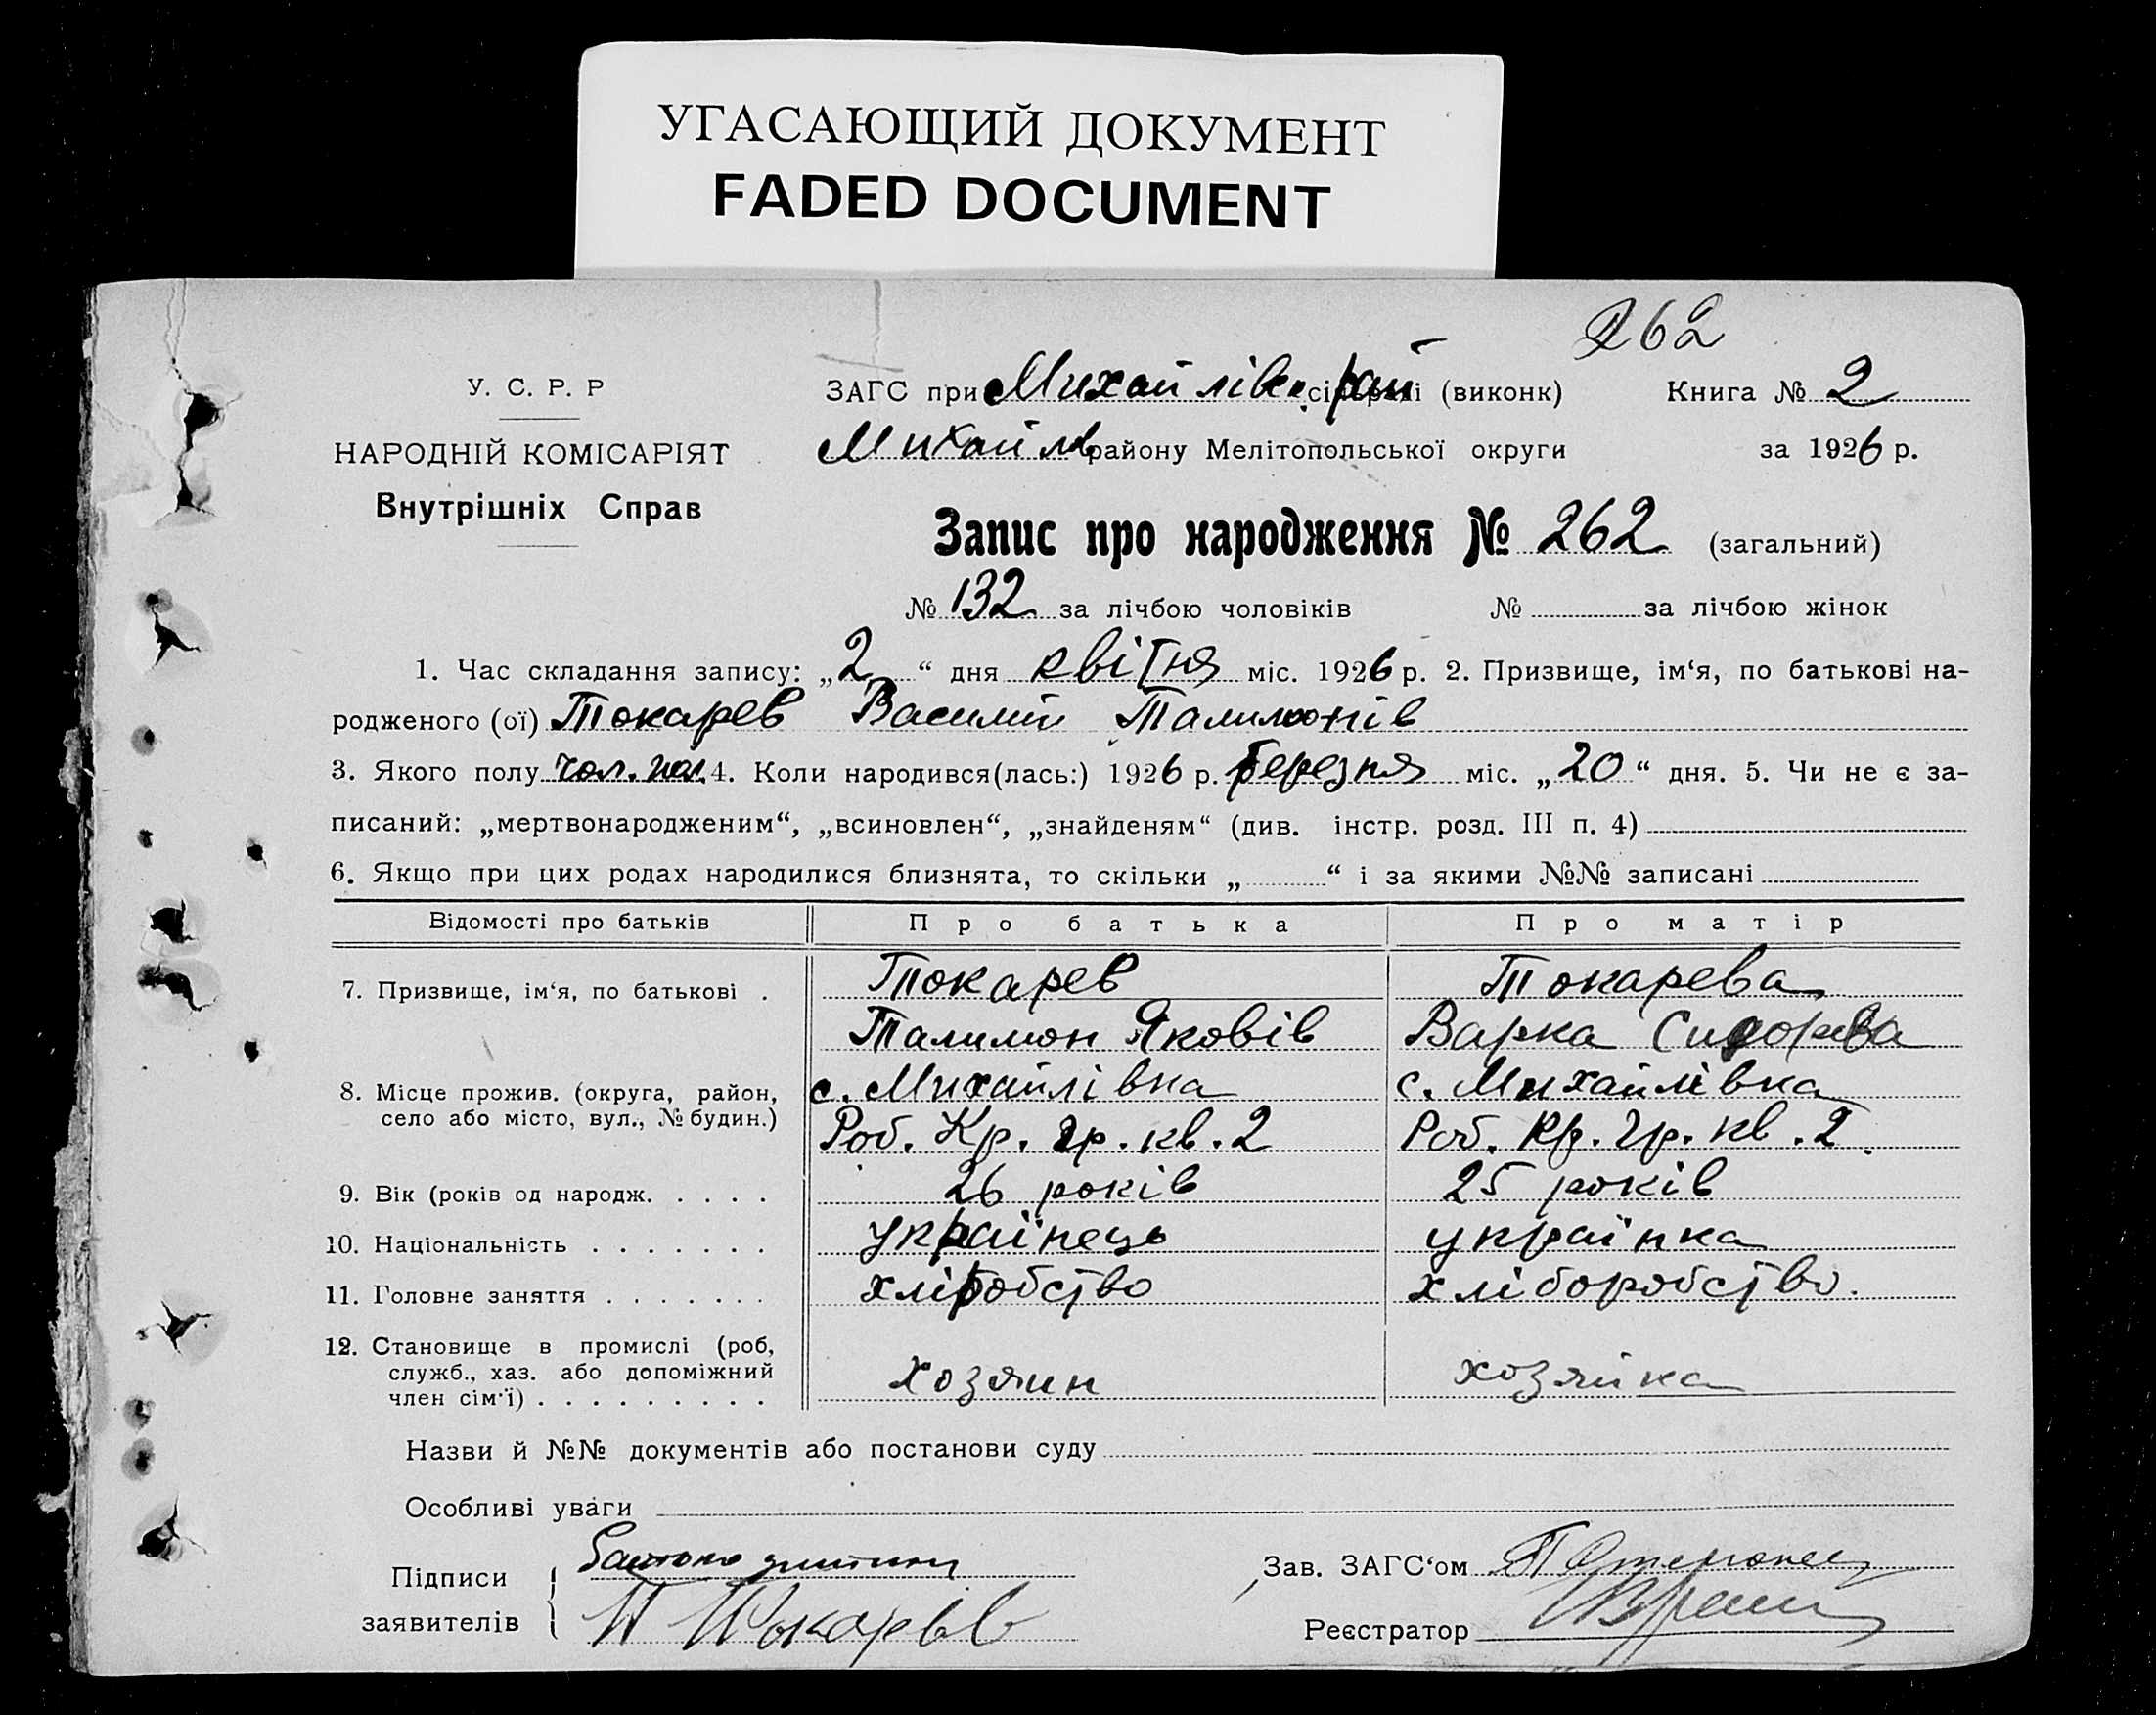 УГАСАЮЩИЙ ДОКУМЕНТ
FADED DOCUMENT
262
У. С. Р. Р
НАРОДНІЙ КОМІСАРІЯТ
Внутрішніх Справ
ЗАГС при Михайлівск. рай (виконк)
Книга № 2
Михайлів району Мелітопольської округи
за 1926 р.
Запис про народження № 262 (загальний)
№ 132 за лічбою чоловіків № за лічбою жінок
1. Час складання запису: „2“ дня квітня міс. 1926 р. 2. Призвище, ім‘я, по батькові на-
родженого (ої) Токарев Василій Талимонів
3. Якого полу чол. пол. 4. Коли народився(лась:) 1926 р. березня міс. „20“ дня. 5. Чи не є за-
писаний: „мертвонародженим“, „всиновлен“, „знайденям“ (див. інстр. розд. III п. 4)
6. Якщо при цих родах народилися близнята, то скільки „ “ і за якими №№ записані
Відомості про батьків Про батька Про матір
7. Призвище, ім‘я, по батькові . Токарев Токарева
Талимон Яковів Варка Сидорева
8. Місце прожив. (округа, район, с. Михайлівка с. Михайлівка
село або місто, вул., № будин.) Роб. Кр. гр. кв. 2 Роб. Кр. гр. кв. 2.
9. Вік (років од народж. . . . . 26 років 25 років
10. Національність . . . . . . . українець українка
11. Головне заняття . . . . . . . хліробство хліборобство.
12. Становище в промислі (роб,
служб., хаз. або допоміжний хозяин хозяйка
член сім'ї) . . . . . . . . .
Назви й №№ документів або постанови суду
Особливі уваги
Підписи Батько дитини
заявителів Т Токарев
Зав. ЗАГС‘ом
Реєстратор